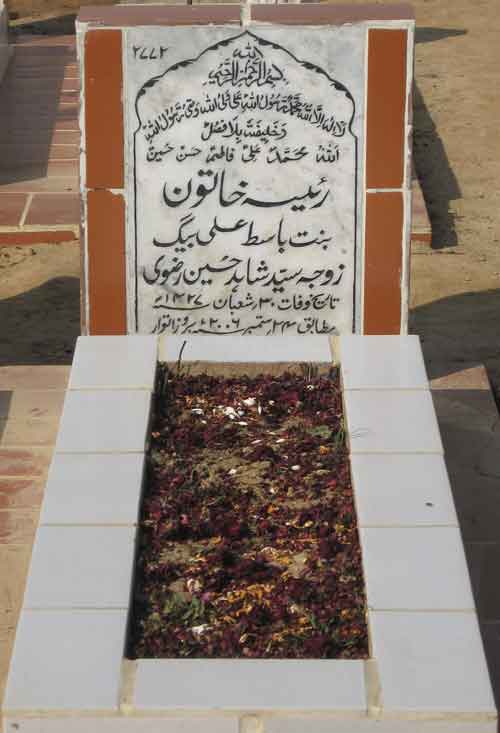 ۲۷۷۲
الله
بسم الله الرحمن الرحيم
لا إله إلا الله محمد رسول الله علي ولي الله وصي رسول الله
وخليفته بلا فصل
الله محمد علی فاطمہ حسن حسین
رئیسہ خاتون
بنت باسط علی بیگ
زوجہ سید شاہد حسین رضوی
تاریخ وفات ۳۰ شعبان ۱۴۲۷ھ
مطابق ۲۴ ستمبر ۲۰۰۶ء بروز اتوار